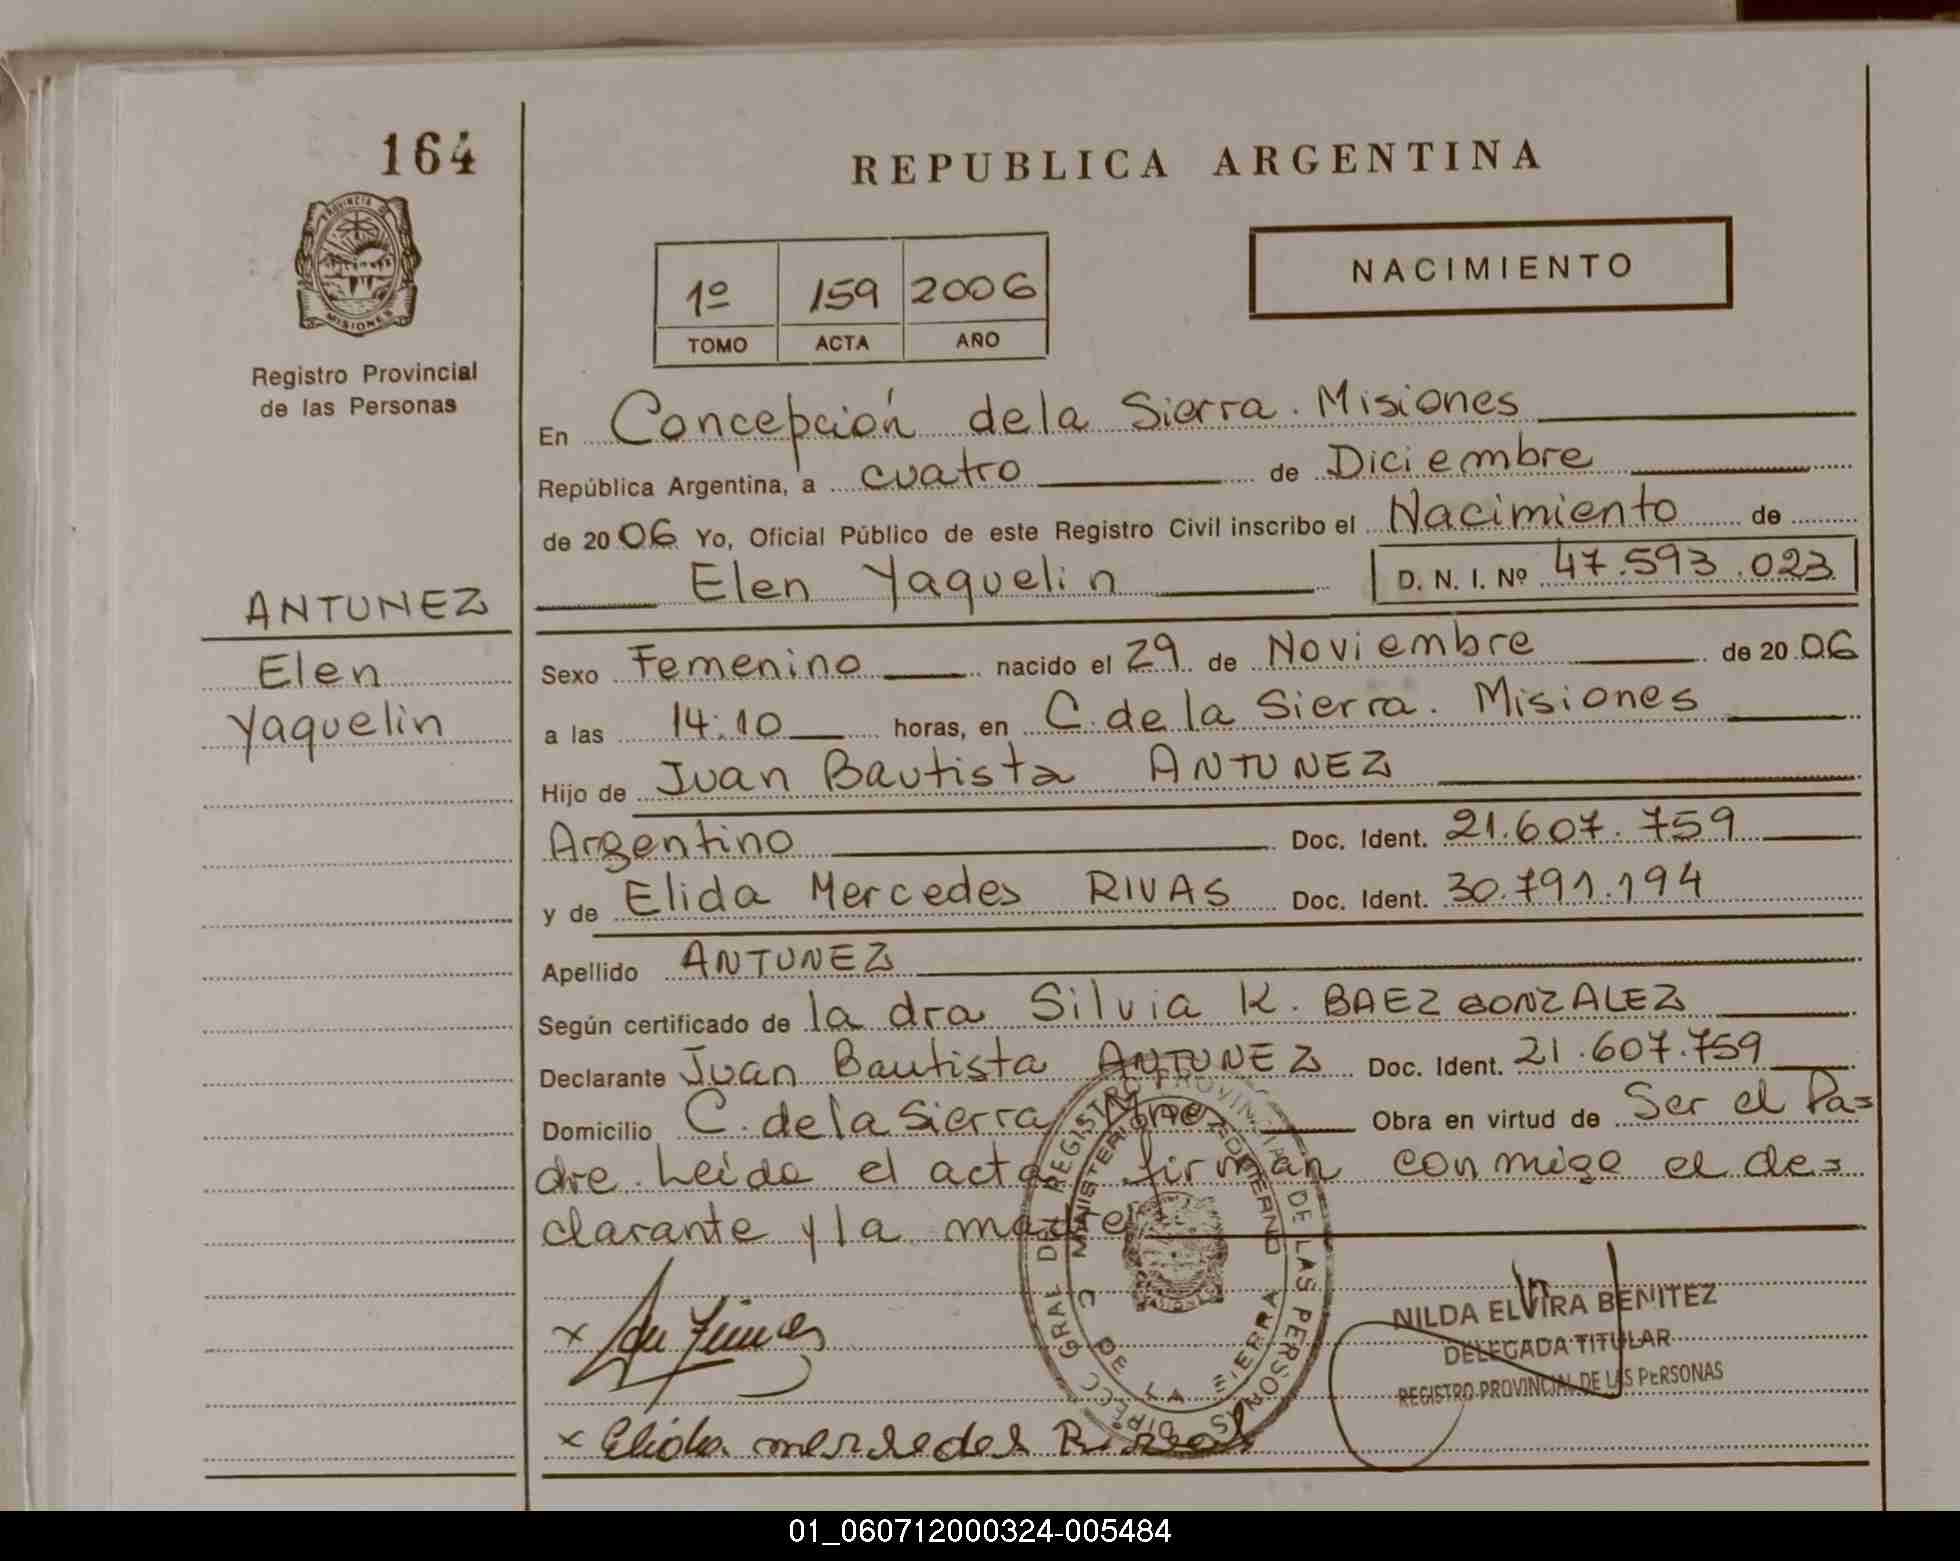 164
REPUBLICA ARGENTINA
PROVINCIA DE
MISIONES
Registro Provincial
de las Personas
1º 159 2006
TOMO ACTA AÑO
NACIMIENTO
En Concepción de la Sierra. Misiones
República Argentina, a cuatro de Diciembre
de 2006 Yo, Oficial Público de este Registro Civil inscribo el Nacimiento de
Elen Yaquelin D. N. I. Nº 47.593.023
ANTUNEZ
Elen
Yaquelin
Sexo Femenino nacido el 29 de Noviembre de 2006
a las 14:10 horas, en C. de la Sierra. Misiones
Hijo de Juan Bautista ANTUNEZ
Argentino Doc. Ident. 21.607.759
y de Elida Mercedes RIVAS Doc. Ident. 30.791.194
Apellido ANTUNEZ
Según certificado de la dra Silvia K. BAEZ GONZALEZ
Declarante Juan Bautista ANTUNEZ Doc. Ident. 21.607.759
Domicilio C. de la Sierra Mnes Obra en virtud de Ser el Pa=
dre. Leída el acta firman conmigo el de=
clarante y la madre
DIRECC GRAL DEL REGISTRO PROVINCIAL DE LAS PERSONAS
MINISTERIO DE GOBIERNO
C DE LA SIERRA
NILDA ELVIRA BENITEZ
DELEGADA TITULAR
REGISTRO PROVINCIAL DE LAS PERSONAS
x
x Elida mersedes Rivas
01_060712000324-005484